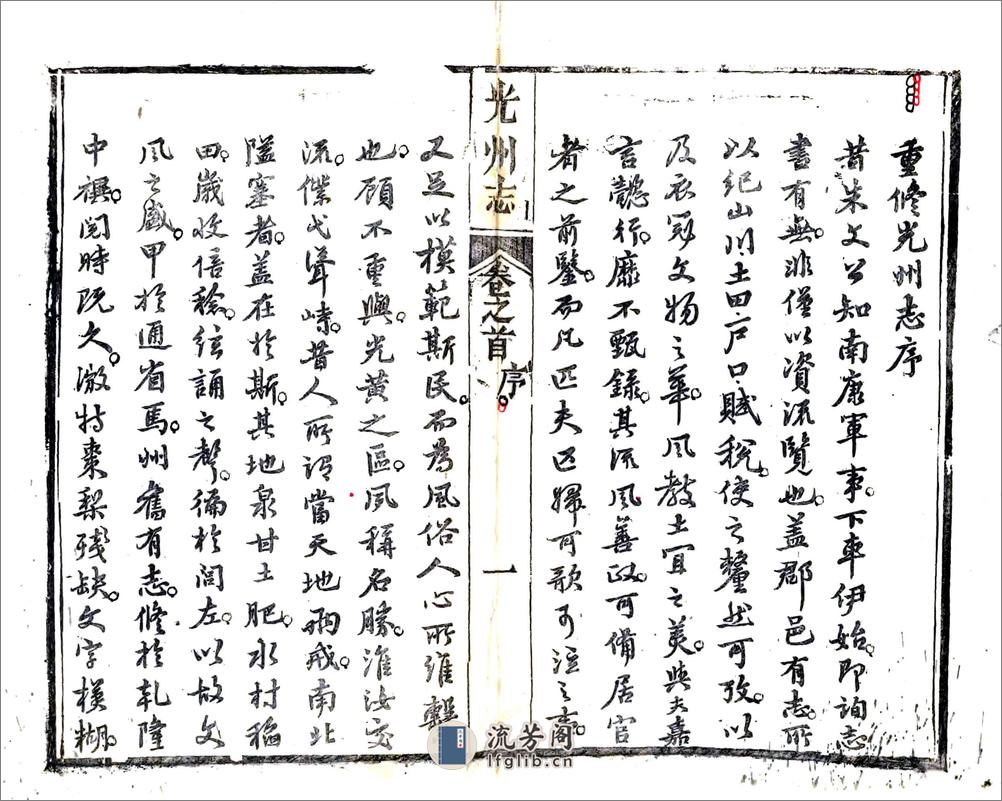 重修光州志序
昔朱文公知南康軍事。下車伊始。即詢志
書有無。非僅以資流覽也。蓋郡邑有志。所
以紀山川土田戶口賦稅。使之釐然可攷。以
及衣冠文物之華。風教土宜之美。與夫嘉
言懿行。靡不甄錄。其流風善政。可備居官
者之前鑒。而凡匹夫匹婦可歌可泣之
光州志
卷之首
序。
一
又足以模範斯民。而為風俗人心所維繫
也。顧不重與。光黃之區。夙稱名勝。淮汝交
流。傑弋聳峙。昔人所謂當天地兩戒。南北
隘塞者。蓋在於斯。其地泉甘土肥。水村稻
田。歲收倍稔。絃誦之聲。徧於閭左。以故文
風之盛。甲於通省焉。州舊有志。修於乾隆
中禩。閱時既久。漶特棗梨殘缺。文字模糊。
流芳阁
lfglib.cn